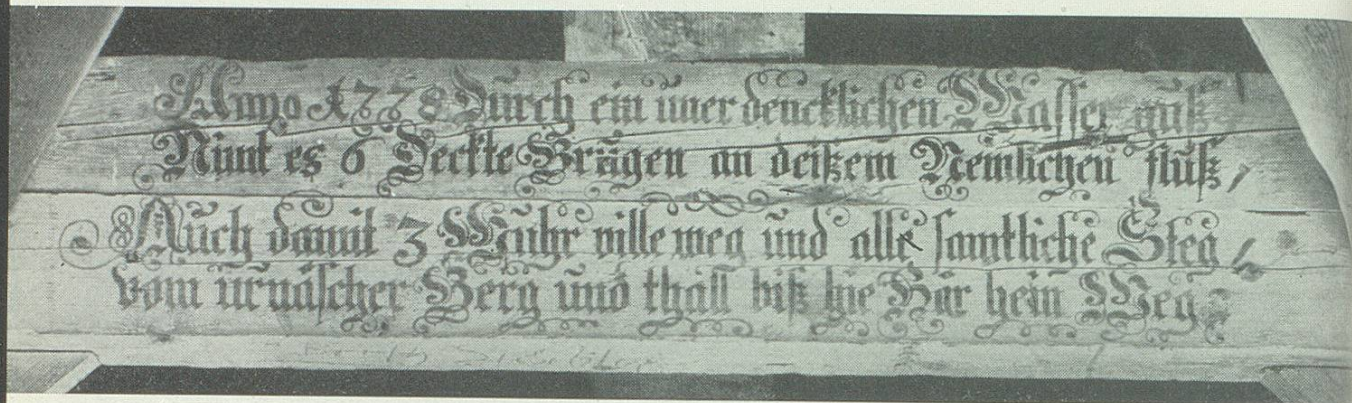 Anno 1778 Durch ein unerdencklichen Wasser guß
Nimt es 6 Deckte Brägen an deißem Nemlichen fluß,
Auch damit 3 Wuhr ville weg und alle samtliche Steg,
vom urnäscher Berg und thall biß hie Här hein Weg